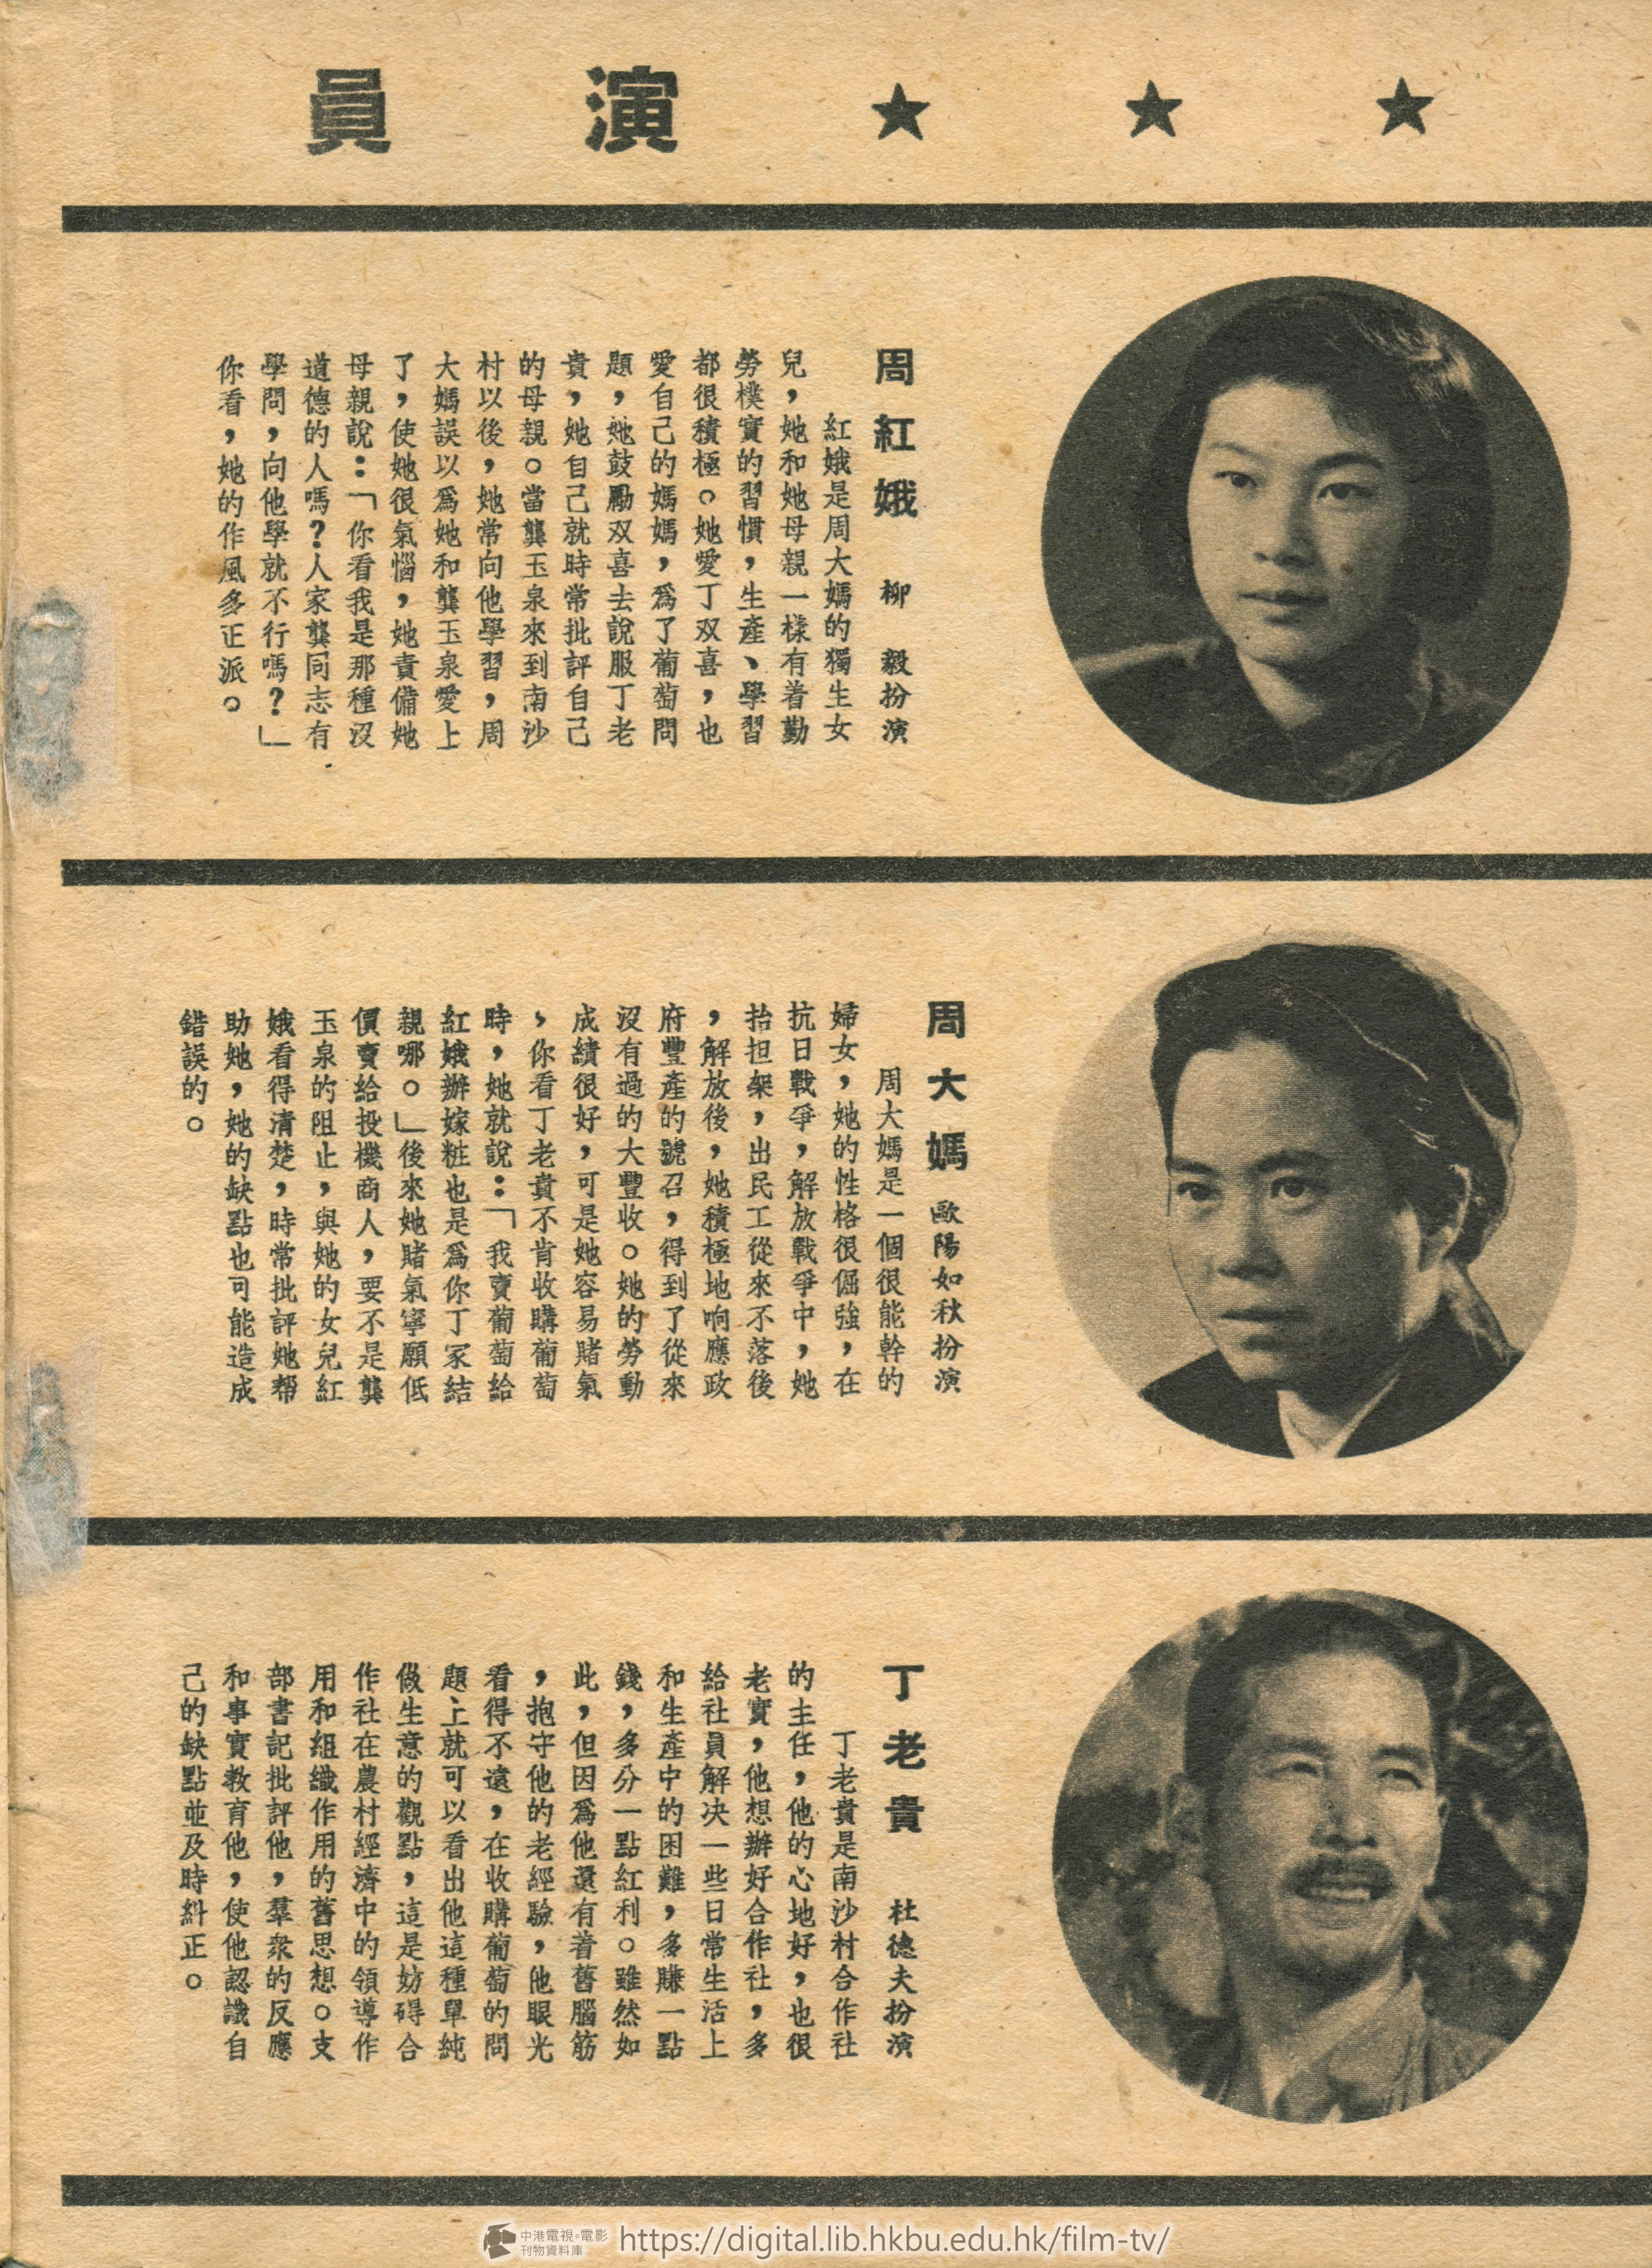 演員
周紅娥 柳 毅扮演
紅娥是周大媽的獨生女
兒，她和她母親一樣有着勤
勞樸實的習慣，生產、學習
都很積極。她愛丁双喜，也
愛自己的媽媽，爲了葡萄問
題，她鼓勵双喜去說服丁老
貴，她自己就時常批評自己
的母親。當龔玉泉來到南沙
村以後，她常向他學習，周
大媽誤以爲她和龔玉泉愛上
了，使她很氣惱，她責備她
母親說：「你看我是那種沒
道德的人嗎？人家龔同志有
學問，向他學就不行嗎？」
你看，她的作風多正派。
周大媽 歐陽如秋扮演
周大媽是一個很能幹的
婦女，她的性格很倔強，在
抗日戰爭，解放戰爭中，她
抬担架，出民工從來不落後
，解放後，她積極地响應政
府豐產的號召，得到了從來
沒有過的大豐收。她的勞動
成績很好，可是她容易賭氣
，你看丁老貴不肯收購葡萄
時，她就說：「我賣葡萄給
紅娥辦嫁粧也是爲你丁家結
親哪。」後來她賭氣寧願低
價賣給投機商人，要不是龔
玉泉的阻止，與她的女兒紅
娥看得清楚，時常批評她帮
助她，她的缺點也可能造成
錯誤的。
丁老貴 杜德夫扮演
丁老貴是南沙村合作社
的主任，他的心地好，也很
老實，他想辦好合作社，多
給社員解決一些日常生活上
和生產中的困難，多賺一點
錢，多分一點紅利。雖然如
此，但因爲他還有着舊腦筋
，抱守他的老經驗，他眼光
看得不遠，在收購葡萄的問
題上就可以看出他這種單純
做生意的觀點，這是妨碍合
作社在農村經濟中的領導作
用和組織作用的舊思想。支
部書記批評他，羣衆的反應
和事實教育他，使他認識自
己的缺點並及時糾正。
中港電視·電影
刊物資料庫
https://digital.lib.hkbu.edu.hk/film-tv/